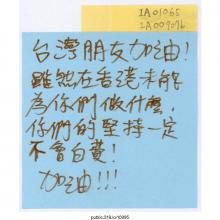 IA01065
IA009076
台灣朋友加油!
雖然在香港未能
為你們做什麼,
你們的堅持一定
不會白費!
加油!!!
public.318.io/10995